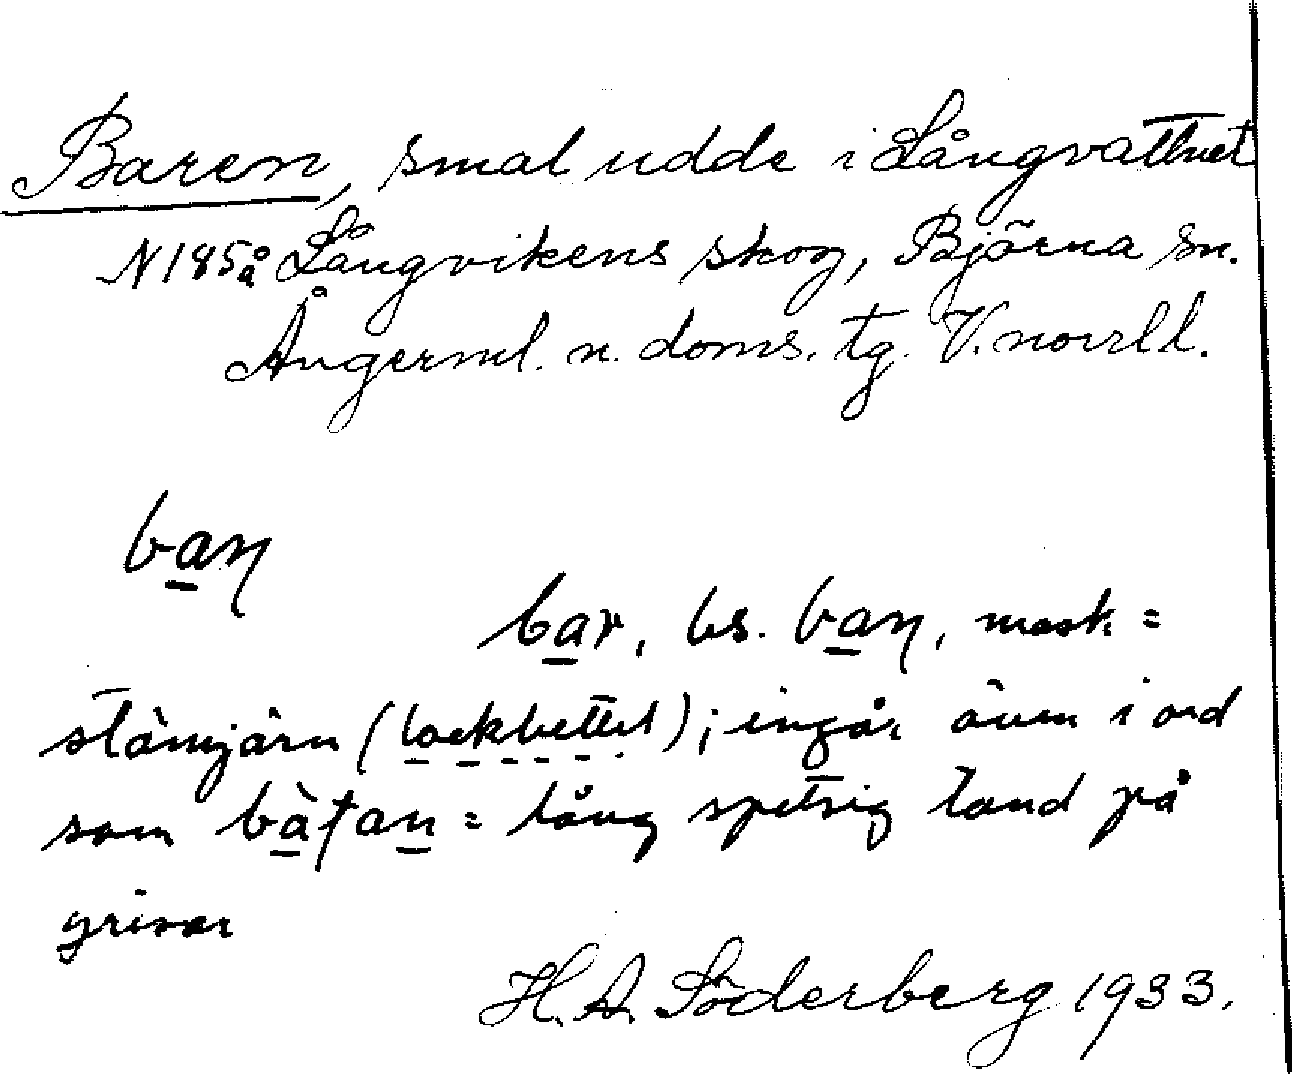 Baren, smal udde i Långvattnet
N185 å Långvikens skog, Björna sn.
Ångerml. n. doms. tg. V.norrl l.
baɳ
bar, bs. baɳ, mask =
stämjärn (lockbettel); ingår även i ord
som bàʈan = lång spetsig tand på
grisar
H. A. Söderberg 1933.